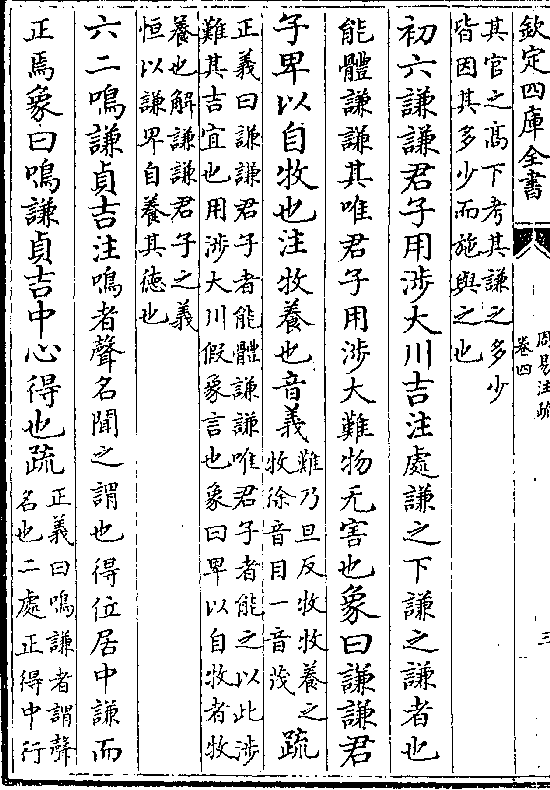 欽定四庫全書
周易注疏
卷四
三
其官之高下考其謙之多少
皆因其多少而施與之也
初六謙謙君子用涉大川吉注處謙之下謙之謙者也
能體謙謙其唯君子用涉大難物无害也象曰謙謙君
子卑以自牧也注牧養也音義
難乃旦反牧牧養之
牧徐音目一音茂
疏
正義曰謙謙君子者能體謙謙唯君子者能之以此涉
難其吉宜也用涉大川假象言也象曰卑以自牧者牧
養也解謙謙君子之義
恒以謙卑自養其德也
六二鳴謙貞吉注鳴者聲名聞之謂也得位居中謙而
正焉象曰鳴謙貞吉中心得也疏
正義曰鳴謙者謂聲
名也二處正得中行